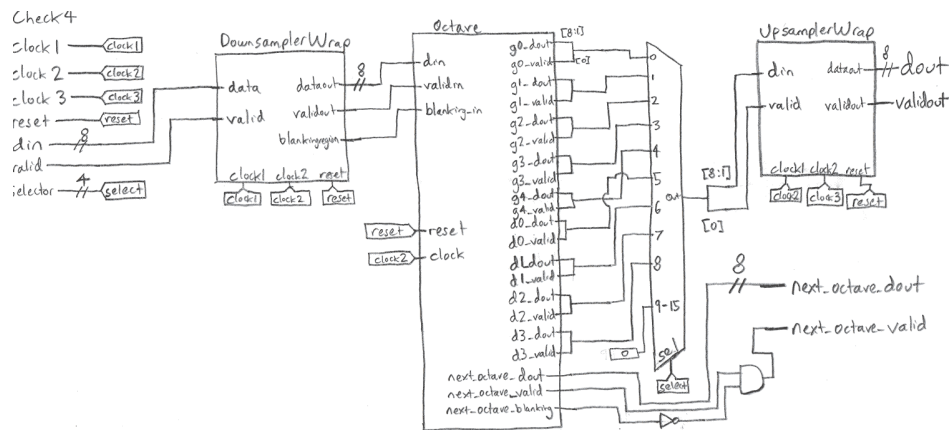 Check4
clock1
clock1
clock 2
clock2
clock 3
clock3
reset
reset
din
8
valid
selector
4
select
DownsamplerWrap
data
valid
dataout
validout
blankingregion
clock1 clock2 reset
clock1
clock2
reset
8
Octave
din
validin
blanking_in
reset
reset
clock2
clock
g0_dout
g0_valid
g1_dout
g1_valid
g2_dout
g2_valid
g3_dout
g3_valid
g4_dout
g4_valid
d0_dout
d0_valid
d1_dout
d1_valid
d2_dout
d2_valid
d3_dout
d3_valid
next_octave_dout
next_octave_valid
next_octave_blanking
[8:1]
[0]
0
1
2
3
4
5
6
7
8
9-15
0
out
sel
select
[8:1]
[0]
UpsamplerWrap
din
valid
dataout
validout
clock1 clock2 reset
clock2
clock3
reset
8
dout
validout
8
next_octave_dout
next_octave_valid